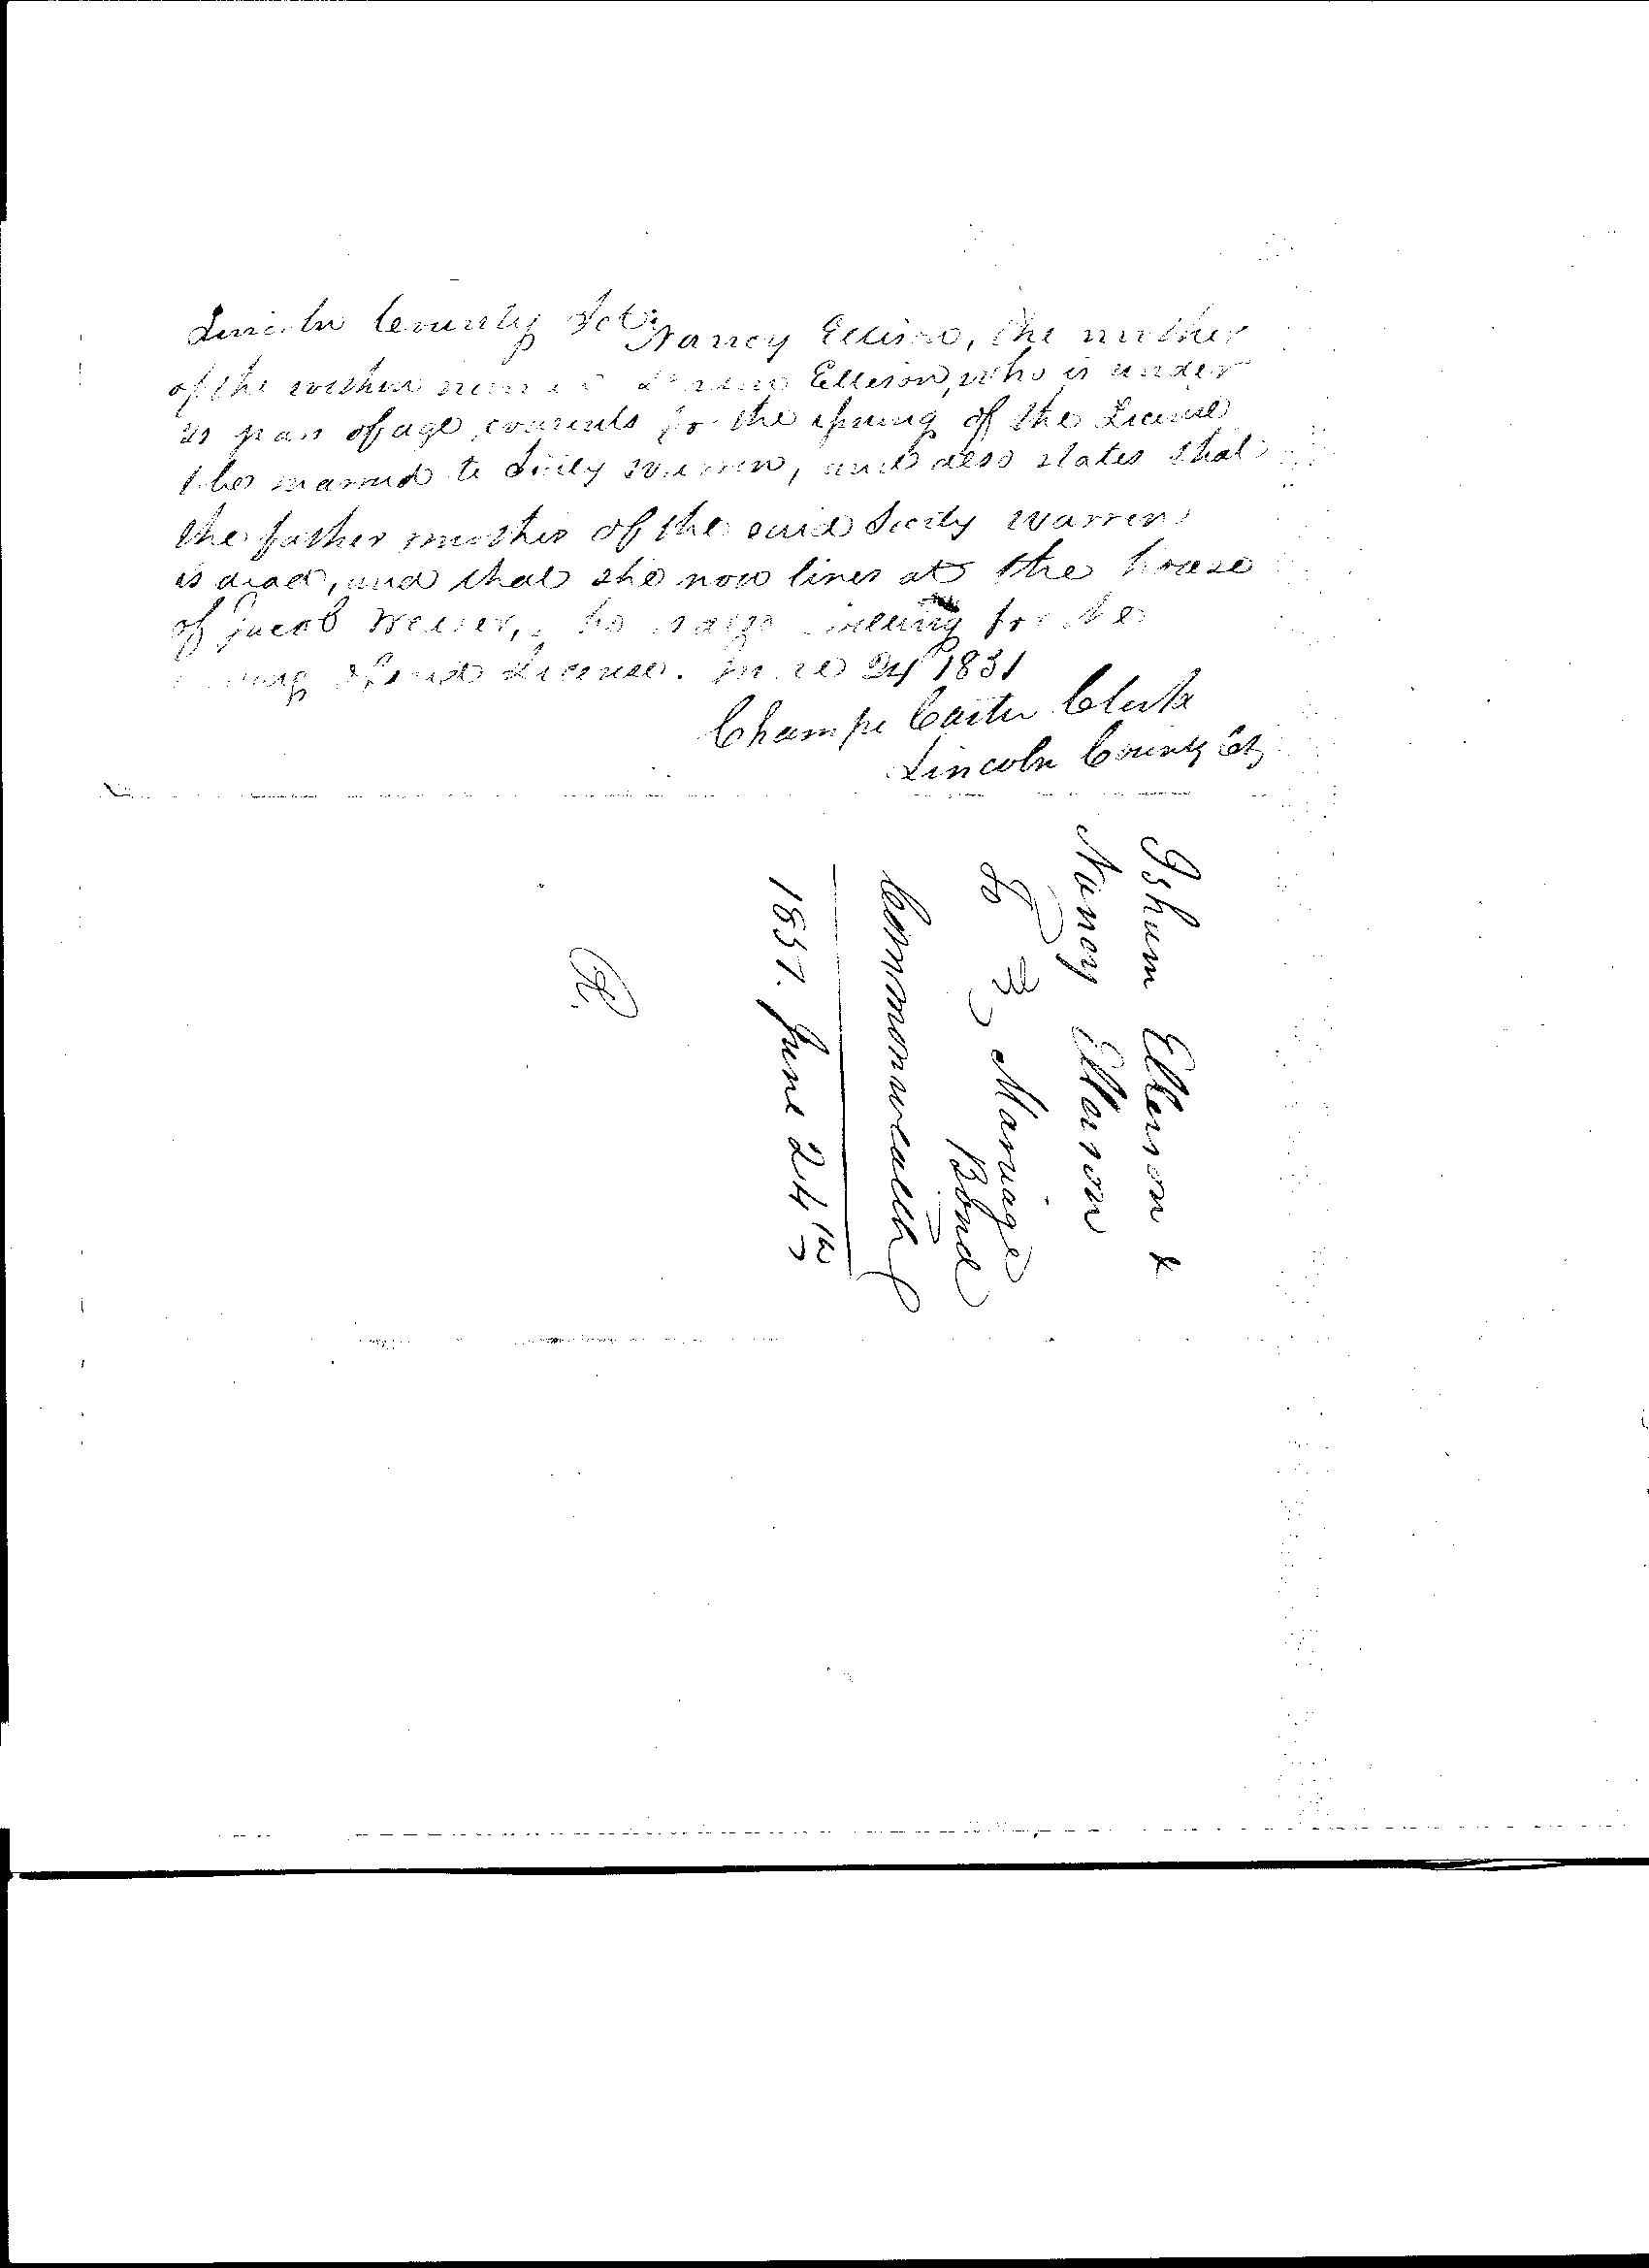 Lincoln County Sct. Nancy Ellison, the mother
of the within named Ellison, who is under
21 years of age, consents for the issuing of the License
to be married to Sicily Warren, and also states that
the father mother of the said Sicily Warren
is dead, and that she now lives at the house
of Jacob willing for the
issuing of said License. June 24 1831
Champe Carter Clerk
Lincoln County Ct
Isham Ellison &
Nancy Ellison
To Marriage
Bond
Commonwealth
1831. June 24th
R.